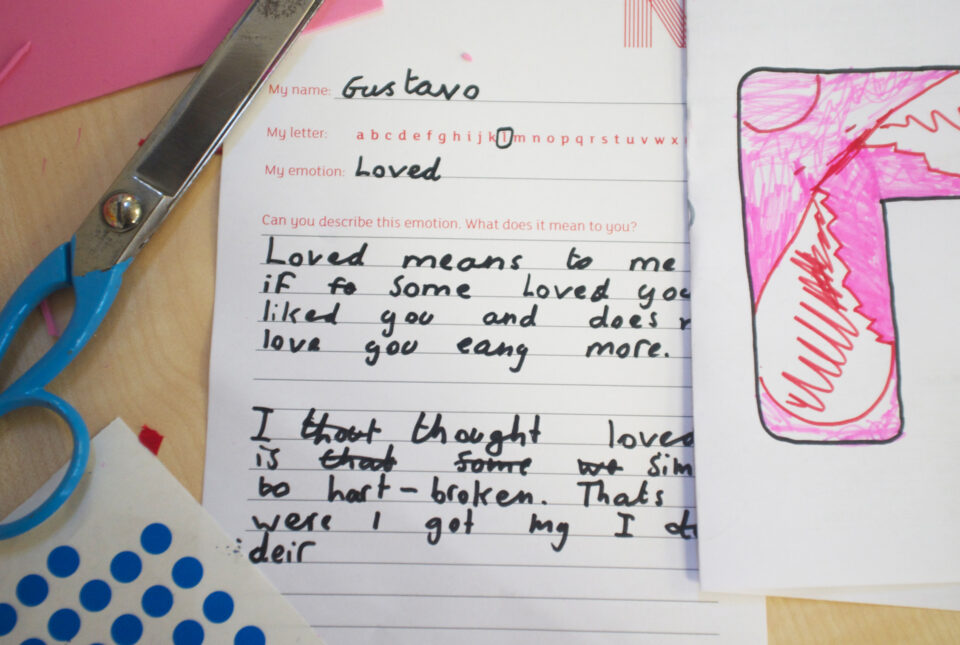 My name: Gustavo
My letter: a b c d e f g h i j k l m n o p q r s t u v w x
My emotion: Loved
Can you describe this emotion. What does it mean to you?
Loved means to me
if fo some loved you
liked you and does
love you eang more.
I thout thought loved
is that some we sim
to hart-broken. Thats
were I got my I
deir